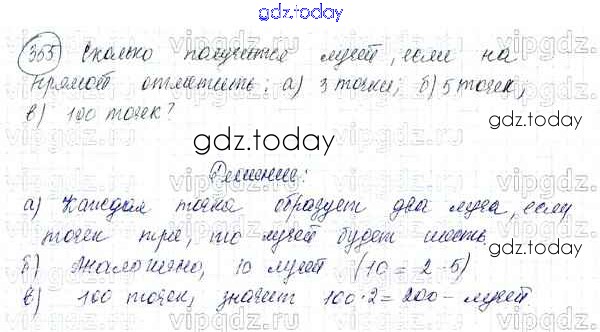 gdz.today
355 Сколько получится лучей, если на
прямой отметить: а) 3 точки; б) 5 точек,
в) 100 точек?
gdz.today
Решение:
а) Каждая точка образует два луча, если
точек три, то лучей будет шесть.
gdz.today
б) Аналогично, 10 лучей (10 = 2 · 5)
в) 100 точек, значит 100·2=200 - лучей.